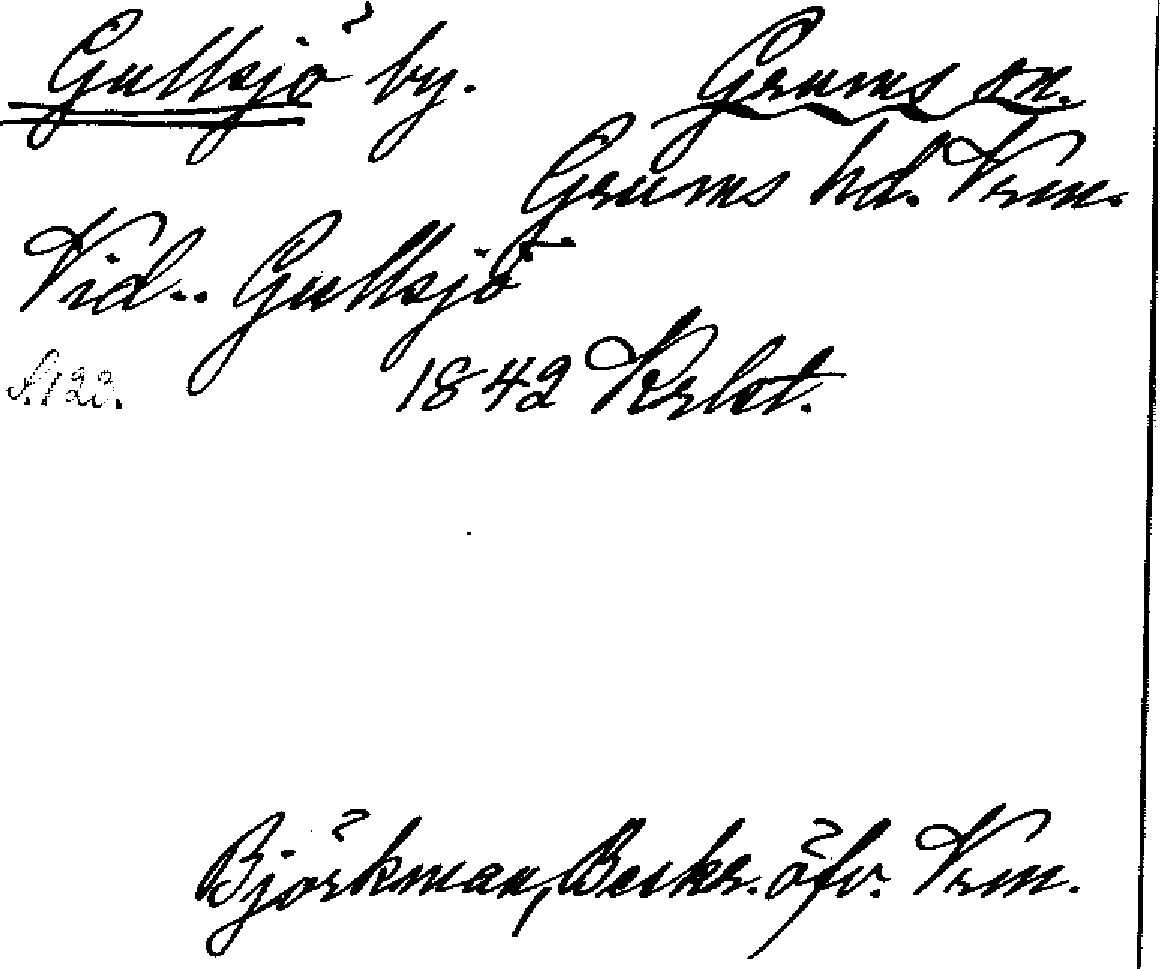 Gullsjö by. Grums sn.
Grums hd. Vrm.
Vid.. Gullsjö
S. 123. 1842 Krlst.
Björkman, Beskr. öfv. Vrm.